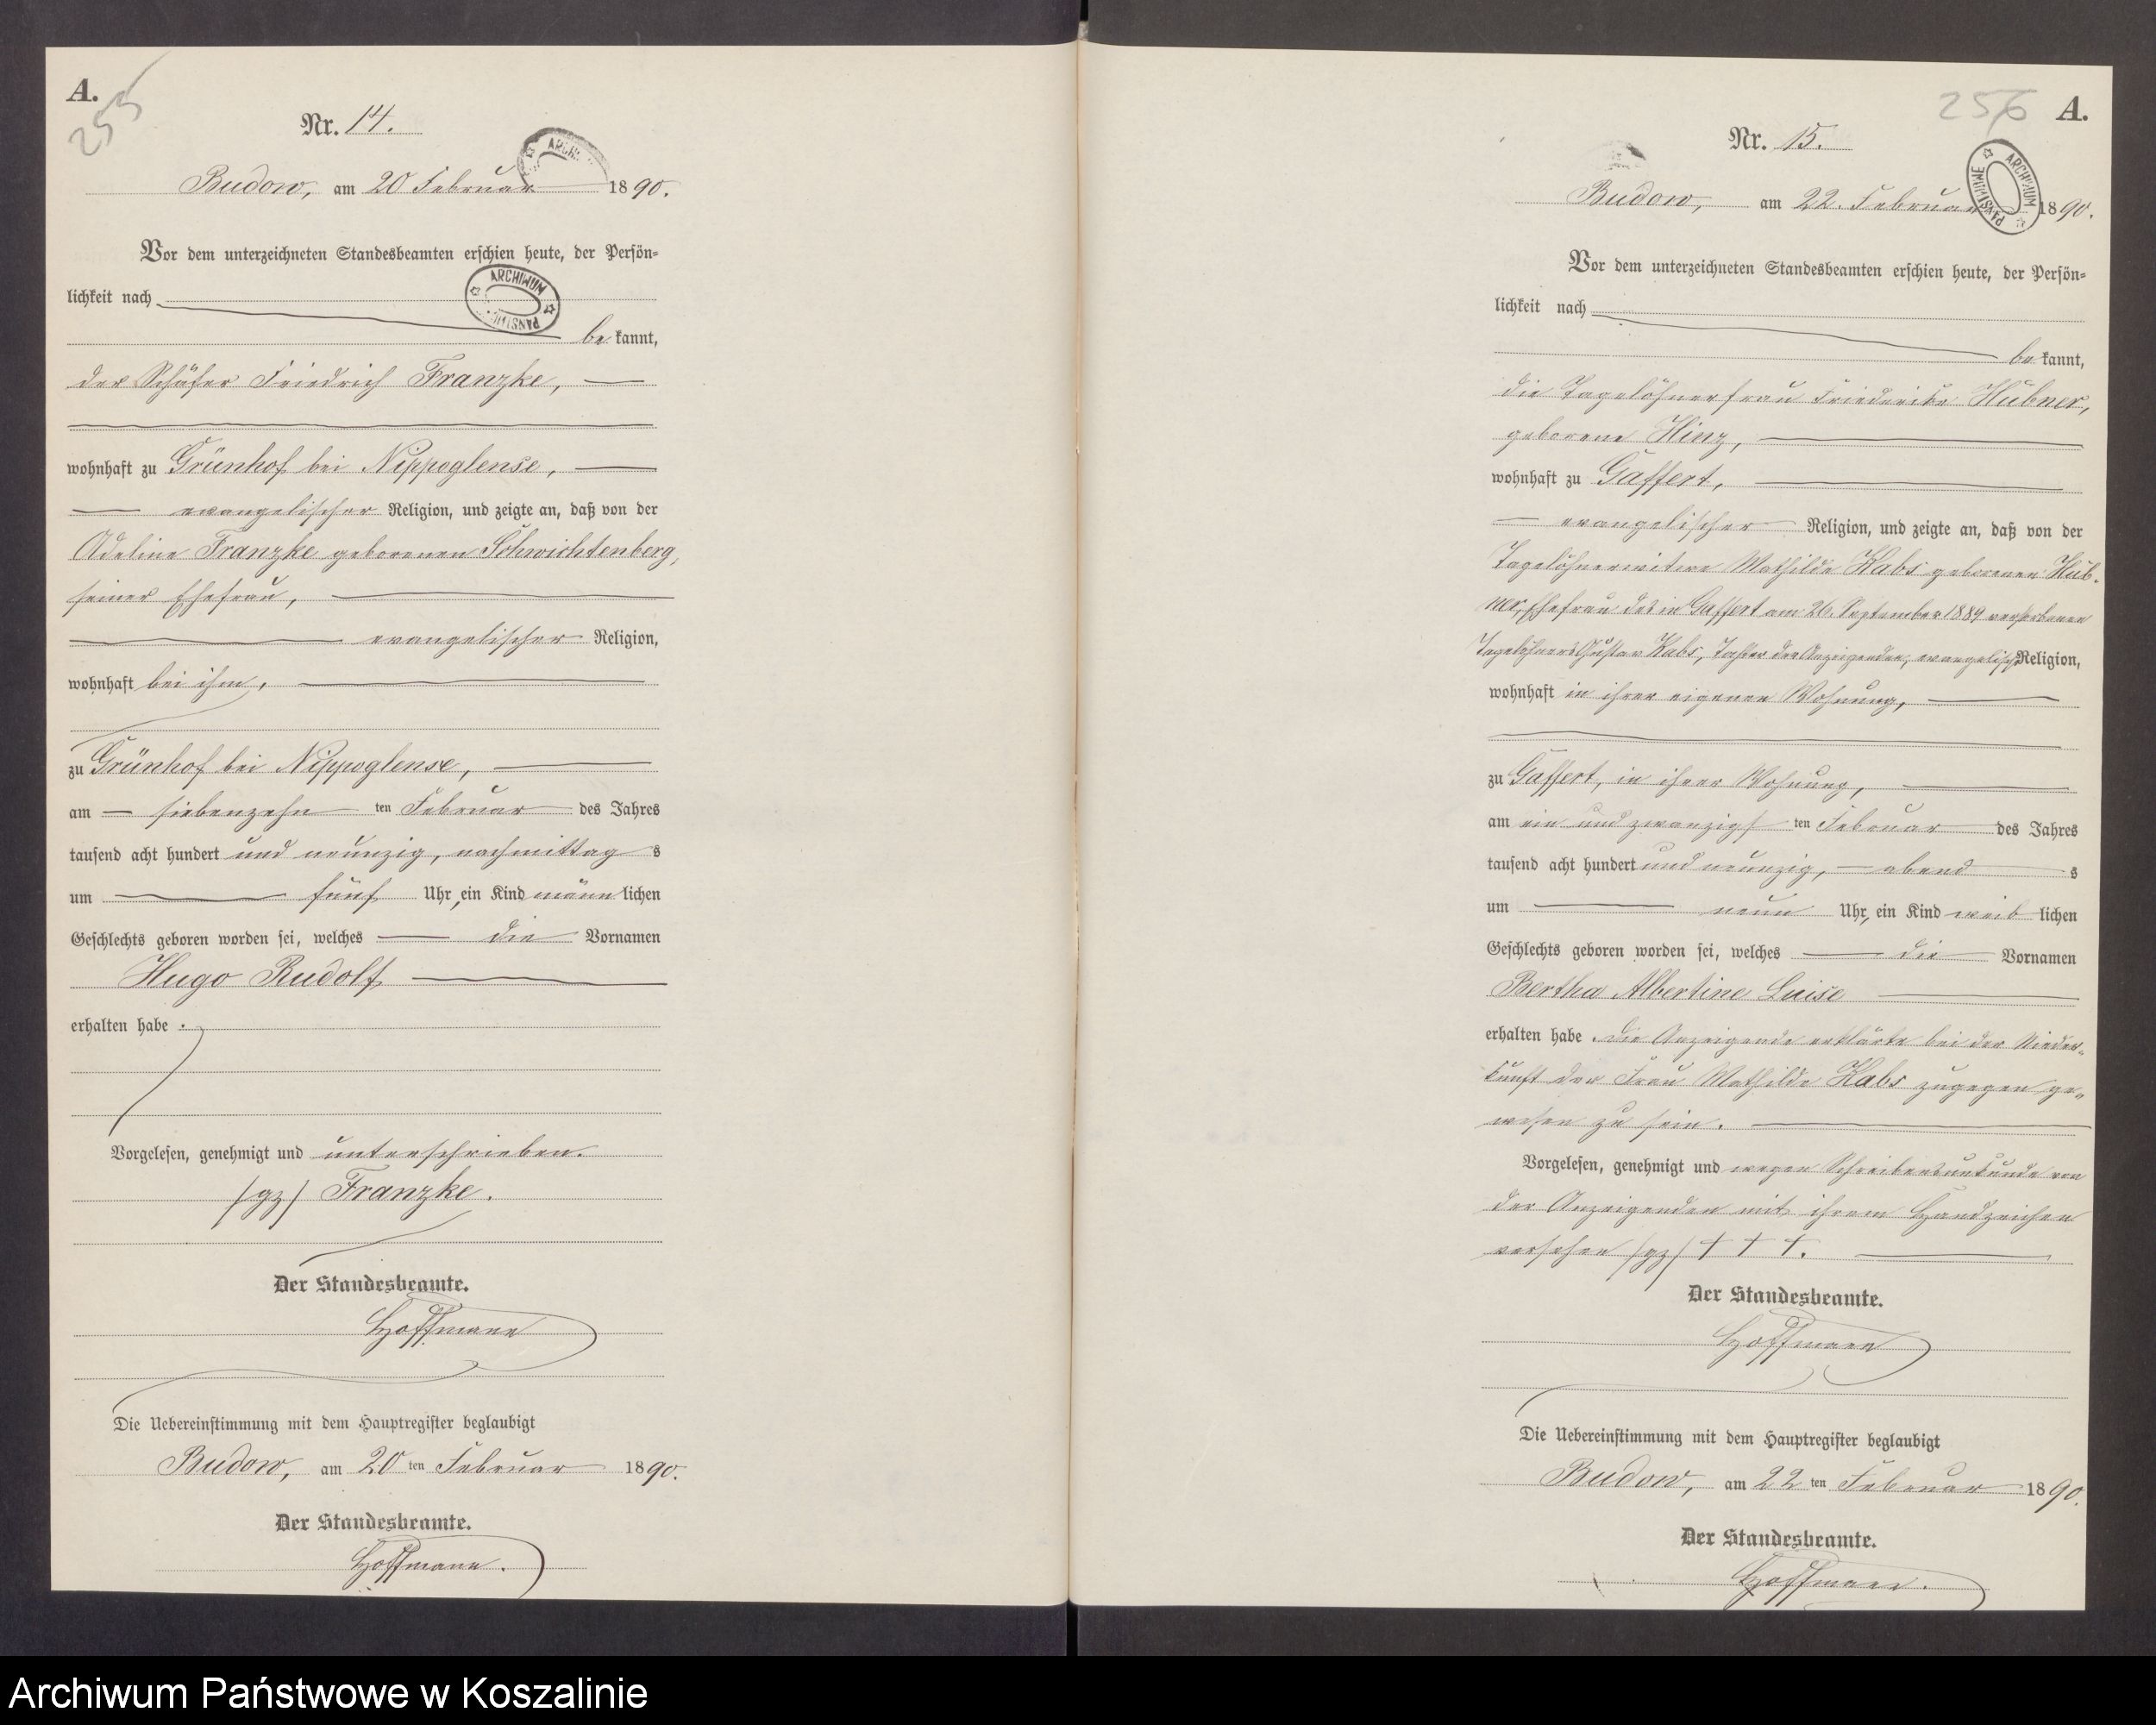 A.
255
Nr. 14.
ARCHI
Budow, am 20 Februar 1890.
Vor dem unterzeichneten Standesbeamten erschien heute, der Persön-
lichkeit nach
ARCHIWUM PAŃSTWO
be kannt,
der Schäfer Friedrich Franzke,
wohnhaft zu Grünhof bei Nippoglense,
evangelischer Religion, und zeigte an, daß von der
Adeline Franzke geborenen Schwichtenberg,
seiner Ehefrau,
evangelischer Religion,
wohnhaft bei ihm,
zu Grünhof bei Nippoglense,
am siebenzehn ten Februar des Jahres
tausend acht hundert und neunzig, nachmittag s
um fünf Uhr, ein Kind männ lichen
Geschlechts geboren worden sei, welches die Vornamen
Hugo Rudolf
erhalten habe.
Vorgelesen, genehmigt und unterschrieben.
/gz/ Franzke.
Der Standesbeamte.
Hoffmann
Die Uebereinstimmung mit dem Hauptregister beglaubigt
Budow, am 20 ten Februar 1890.
Der Standesbeamte.
Hoffmann.
256 A.
Nr. 15.
ARCHIWUM PAŃSTWOWE
Budow, am 22. Februar 1890.
Vor dem unterzeichneten Standesbeamten erschien heute, der Persön-
lichkeit nach
be kannt,
die Tagelöhnerfrau Friederike Hübner,
geborene Hinz,
wohnhaft zu Gaffert,
evangelischer Religion, und zeigte an, daß von der
Tagelöhnerwitwe Mathilde Kabs geborenen Hüb-
ner, Ehefrau des in Gaffert am 26. September 1889 verstorbenen
Tagelöhners Gustav Kabs, Tochter der Anzeigenden, evangelisch Religion,
wohnhaft in ihrer eigenen Wohnung,
zu Gaffert, in ihrer Wohnung,
am ein und zwanzigs ten Februar des Jahres
tausend acht hundert und neunzig, abend s
um neun Uhr, ein Kind weib lichen
Geschlechts geboren worden sei, welches die Vornamen
Bertha Albertine Luise
erhalten habe. Die Anzeigende erklärte bei der Nieder-
kunft der Frau Mathilde Kabs zugegen ge-
wesen zu sein.
Vorgelesen, genehmigt und wegen Schreibensunkunde von
der Anzeigenden mit ihrem Handzeichen
versehen /gz/ † † †.
Der Standesbeamte.
Hoffmann
Die Uebereinstimmung mit dem Hauptregister beglaubigt
Budow, am 22 ten Februar 1890.
Der Standesbeamte.
Hoffmann.
Archiwum Państwowe w Koszalinie